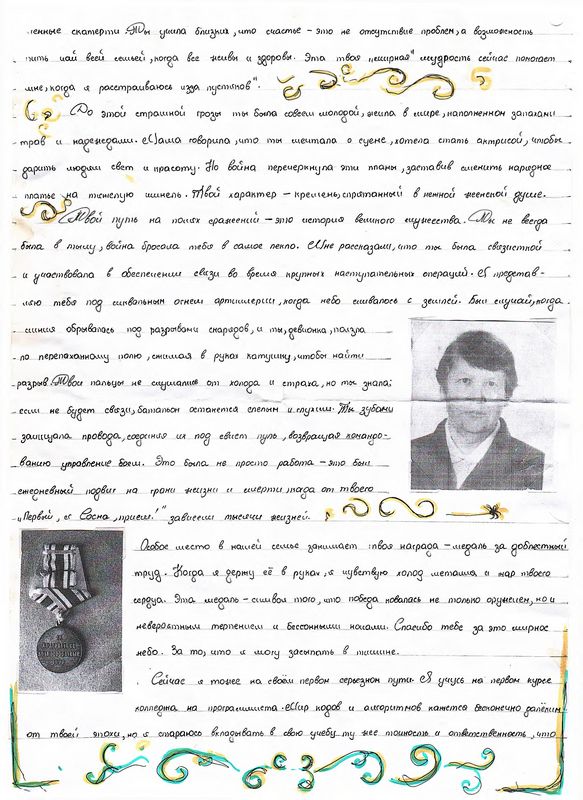 ченные скатерти. Ты учила близких, что счастье – это не отсутствие проблем, а возможность
пить чай всей семьёй, когда все живы и здоровы. Эта твоя „мирная" мудрость сейчас помогает
мне, когда я расстраиваюсь изза пустяков".
До этой страшной грозы ты была совсем молодой, жила в мире, наполненном запахами
трав и надеждами. Мама говорила, что ты мечтала о сцене, хотела стать актрисой, чтобы
дарить людям свет и красоту. Но война перечеркнула эти планы, заставив сменить нарядное
платье на тяжелую шинель. Твой характер – кремень, спрятанный в нежной женской душе.
Твой путь на полях сражений – это история великого мужества. Ты не всегда
была в тылу, война бросала тебя в самое пекло. Мне рассказали, что ты была связисткой
и участвовала в обеспечении связи во время крупных наступательных операций. Я представ-
ляю тебя под шквальным огнем артиллерии, когда небо сливалось с землей. Был случай, когда
линия обрывалась под разрывами снарядов, и ты, девчонка, ползла
по перепаханному полю, сжимая в руках катушку, чтобы найти
разрыв. Твои пальцы не слушались от холода и страха, но ты знала:
если не будет связи, батальон останется слепым и глухим. Ты зубами
зачищала провода, соединяя их под свист пуль, возвращая командо-
ванию управление боем. Это была не просто работа – это был
ежедневный подвиг на грани жизни и смерти, когда от твоего
„Первый, я Сосна, прием!" зависели тысячи жизней.
Особое место в нашей семье занимает твоя награда – медаль за доблестный
труд. Когда я держу её в руках, я чувствую холод металла и жар твоего
сердца. Эта медаль – символ того, что победа ковалась не только оружием, но и
невероятным терпением и бессонными ночами. Спасибо тебе за это мирное
небо. За то, что я могу засыпать в тишине.
Сейчас я тоже на своём первом серьезном пути. Я учусь на первом курсе
колледжа на программиста. Мир кодов и алгоритмов кажется бесконечно далёким
от твоей эпохи, но я стараюсь вкладывать в свою учебу ту же точность и ответственность, что